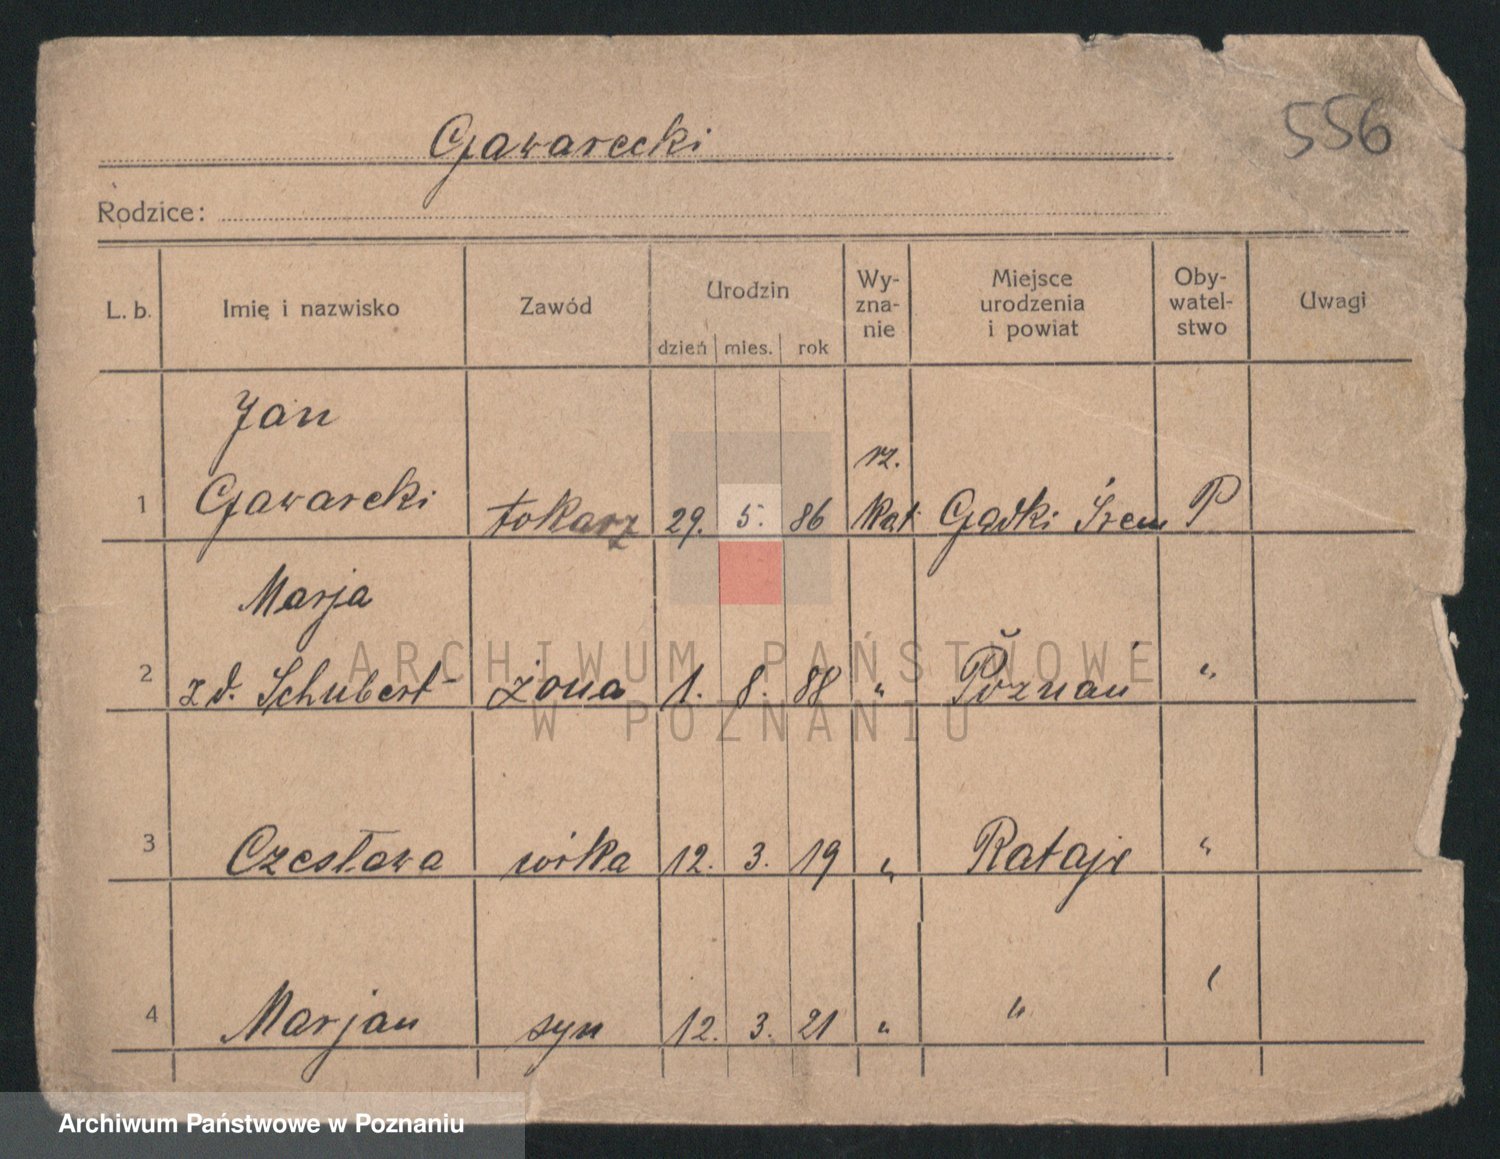 556
Gawarecki
Rodzice:
L. b. Imię i nazwisko Zawód Urodzin dzień mies. rok Wy-zna-nie Miejsce urodzenia i powiat Oby-watel-stwo Uwagi
Jan
1 Gawarcki tokarz 29. 5. 86 rz. kat Gądki Śrem P
Marja
2 z d. Schubert żona 1. 8. 88 " Poznań "
3 Czesława córka 12. 3. 19 " Rataje "
4 Marjan syn 12. 3. 21 " " "
ARCHIWUM PAŃSTWOWE
W POZNANIU
Archiwum Państwowe w Poznaniu